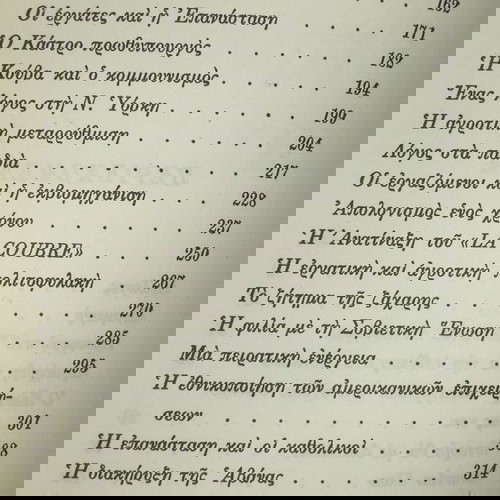 Οἱ ἐργάτες καὶ ἡ Ἐπανάσταση 162
Ὁ Κάστρο πρωθυπουργὸς 171
Ἡ Κούβα καὶ ὁ κομμουνισμὸς 189
Ἕνας λόγος στὴ Ν. Ὑόρκη 194
Ἡ ἀγροτικὴ μεταρρύθμιση 199
Λόγος στὰ παιδιὰ 204
Οἱ ἐργαζόμενοι καὶ ἡ ἐκβιομηχάνιση 217
Ἀπολογισμὸς ἑνὸς χρόνου 228
Ἡ Ἀνατίναξη τοῦ «LA COUBRE» 237
Ἡ ἐργατικὴ καὶ ἀγροτικὴ πολιτοφυλακὴ 250
Τὸ ζήτημα τῆς ζάχαρης 267
Ἡ φιλία μὲ τὴ Σοβιετικὴ Ἕνωση 270
Μιὰ πειρατικὴ ἐνέργεια 285
Ἡ ἐθνικοποίηση τῶν ἀμερικανικῶν ἐπιχειρή- 295
σεων 301
Ἡ ἐπανάσταση καὶ οἱ καθολικοὶ
Ἡ διακήρυξη τῆς Ἀβάνας 314